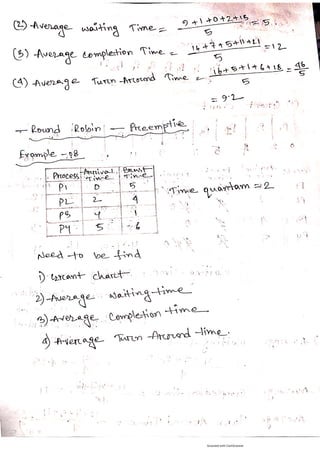 (2) Average waiting Time = 9+1+0+2+15 / 5 = 5.
(3) Average completion Time = 16+7+5+11+21 / 5 = 12
(4) Average Turn-Around Time = 16+5+1+6+18 / 5 = 46 / 5
= 9.2
- Round Robin - Preemptive
Example - 8
Process Arrival Time Burst Time
P1 0 5
P2 2 4
P3 4 1
P4 5 6
Time quantam = 2
Need to be find
1) Grant chart
2) Average Waiting-time
3) Average Completion time
4) Average Turn-Around time.
Scanned with CamScanner